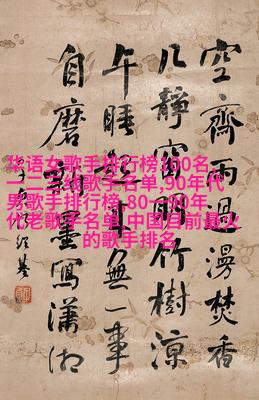 空齋雨過漫焚香
几靜窗明竹樹涼
午睡起來無一事
自磨墨寫瀟湘
华语女歌手排行榜100名,
一二三线歌手名单,90年代
男歌手排行榜,80一90年
代老歌手名单,中国目前最火
的歌手排名